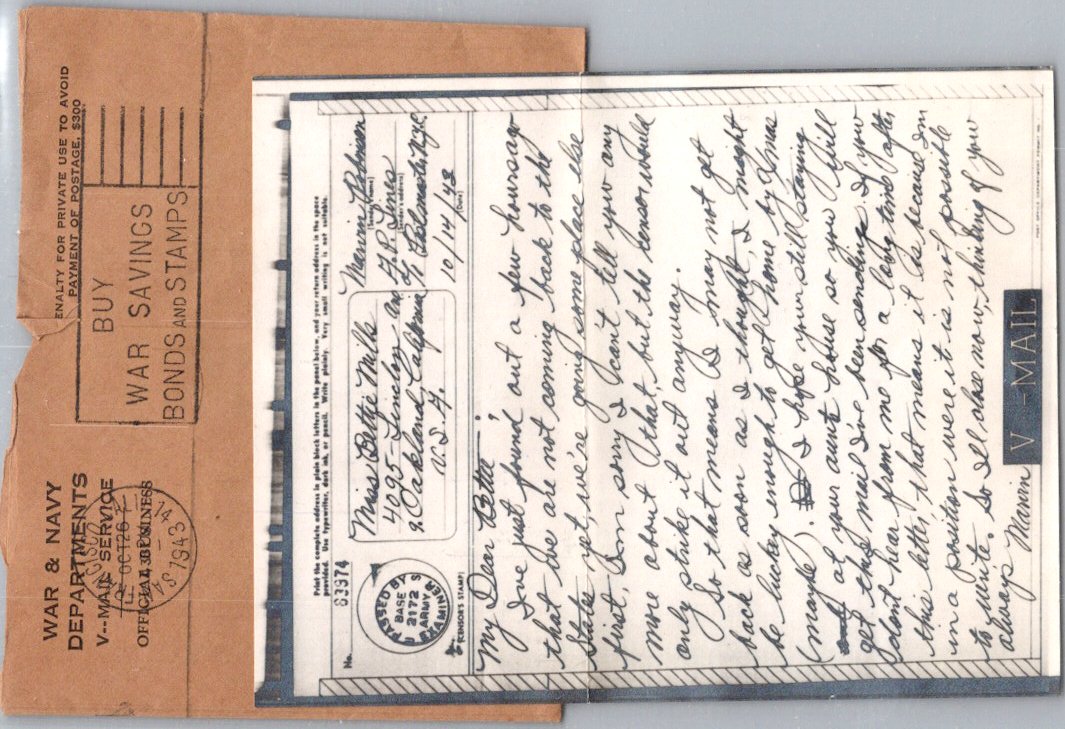 WAR & NAVY
DEPARTMENTS
V--MAIL SERVICE
OFFICIAL BUSINESS
PENALTY FOR PRIVATE USE TO AVOID
PAYMENT OF POSTAGE, $300
OCT 26
1943
BUY
WAR SAVINGS
BONDS AND STAMPS
Print the complete address in plain block letters in the panel below, and your return address in the space
provided. Use typewriter, dark ink, or pencil. Write plainly. Very small writing is not suitable.
No.
63974
PASSED BY
BASE
2172
ARMY
EXAMINER
(CENSOR'S STAMP)
Miss Bettie Mills
4095-Lincoln av
Oakland, California
U.S.A.
Marvin
(Sender's name)
(Sender's address)
10/14/43
(Date)
My Dear Bette:
I've just found out a few hours ago
that we are not coming back to the
States yet, we're going some place else
first, I'm sorry I can't tell you any
more about that, but the censor would
only strike it out anyway.
So that means I may not get
back as soon as I thought, I might
be lucky enough to get home by Xmas
(maybe). I hope your still staying
at your aunts house so you will
get this mail I've been sending. If you
dont hear from me for a long time after
this letter, that means it is because I'm
in a position were it is not possible
to write. So I'll close now, thinking of you
always Marvin
V - MAIL